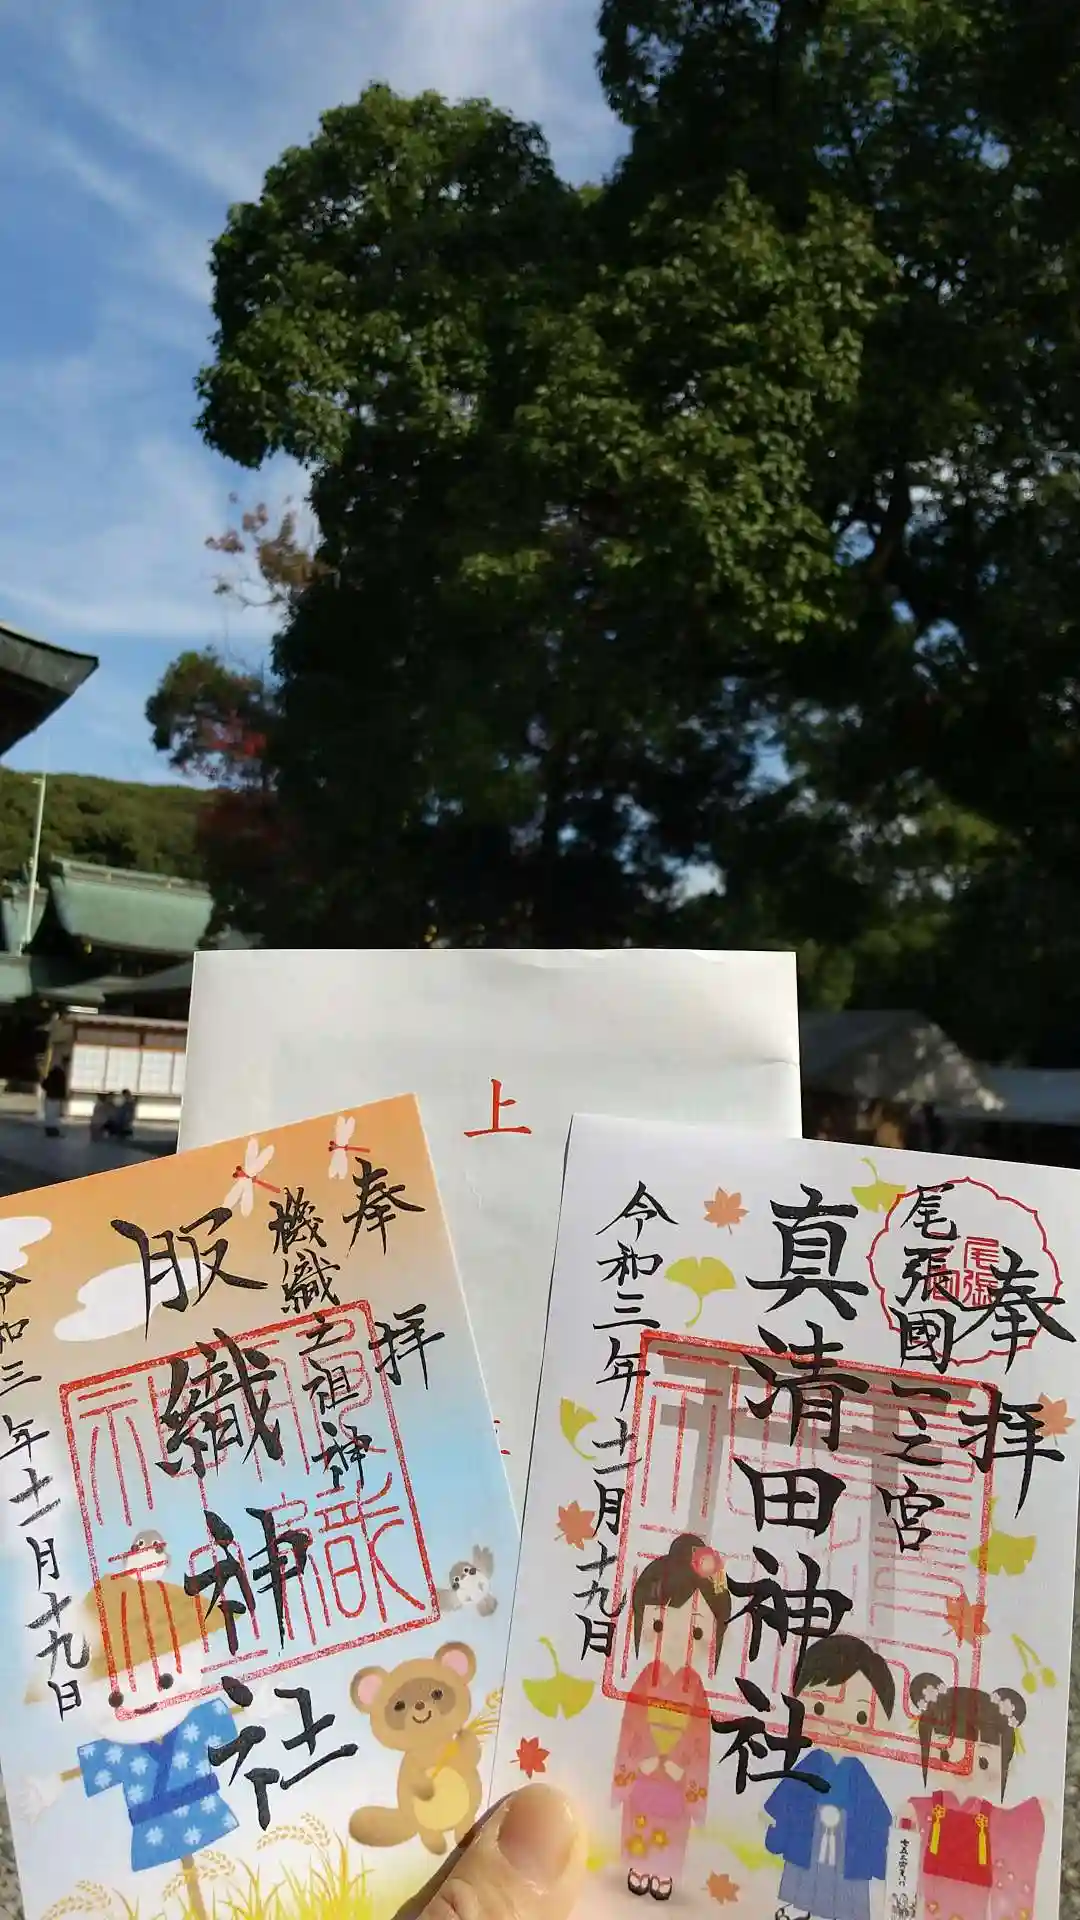 上
奉拝
機織之祖神
服織神社
令和三年十一月十九日
奉拝
尾張國一之宮
尾張
真清田神社
令和三年十一月十九日